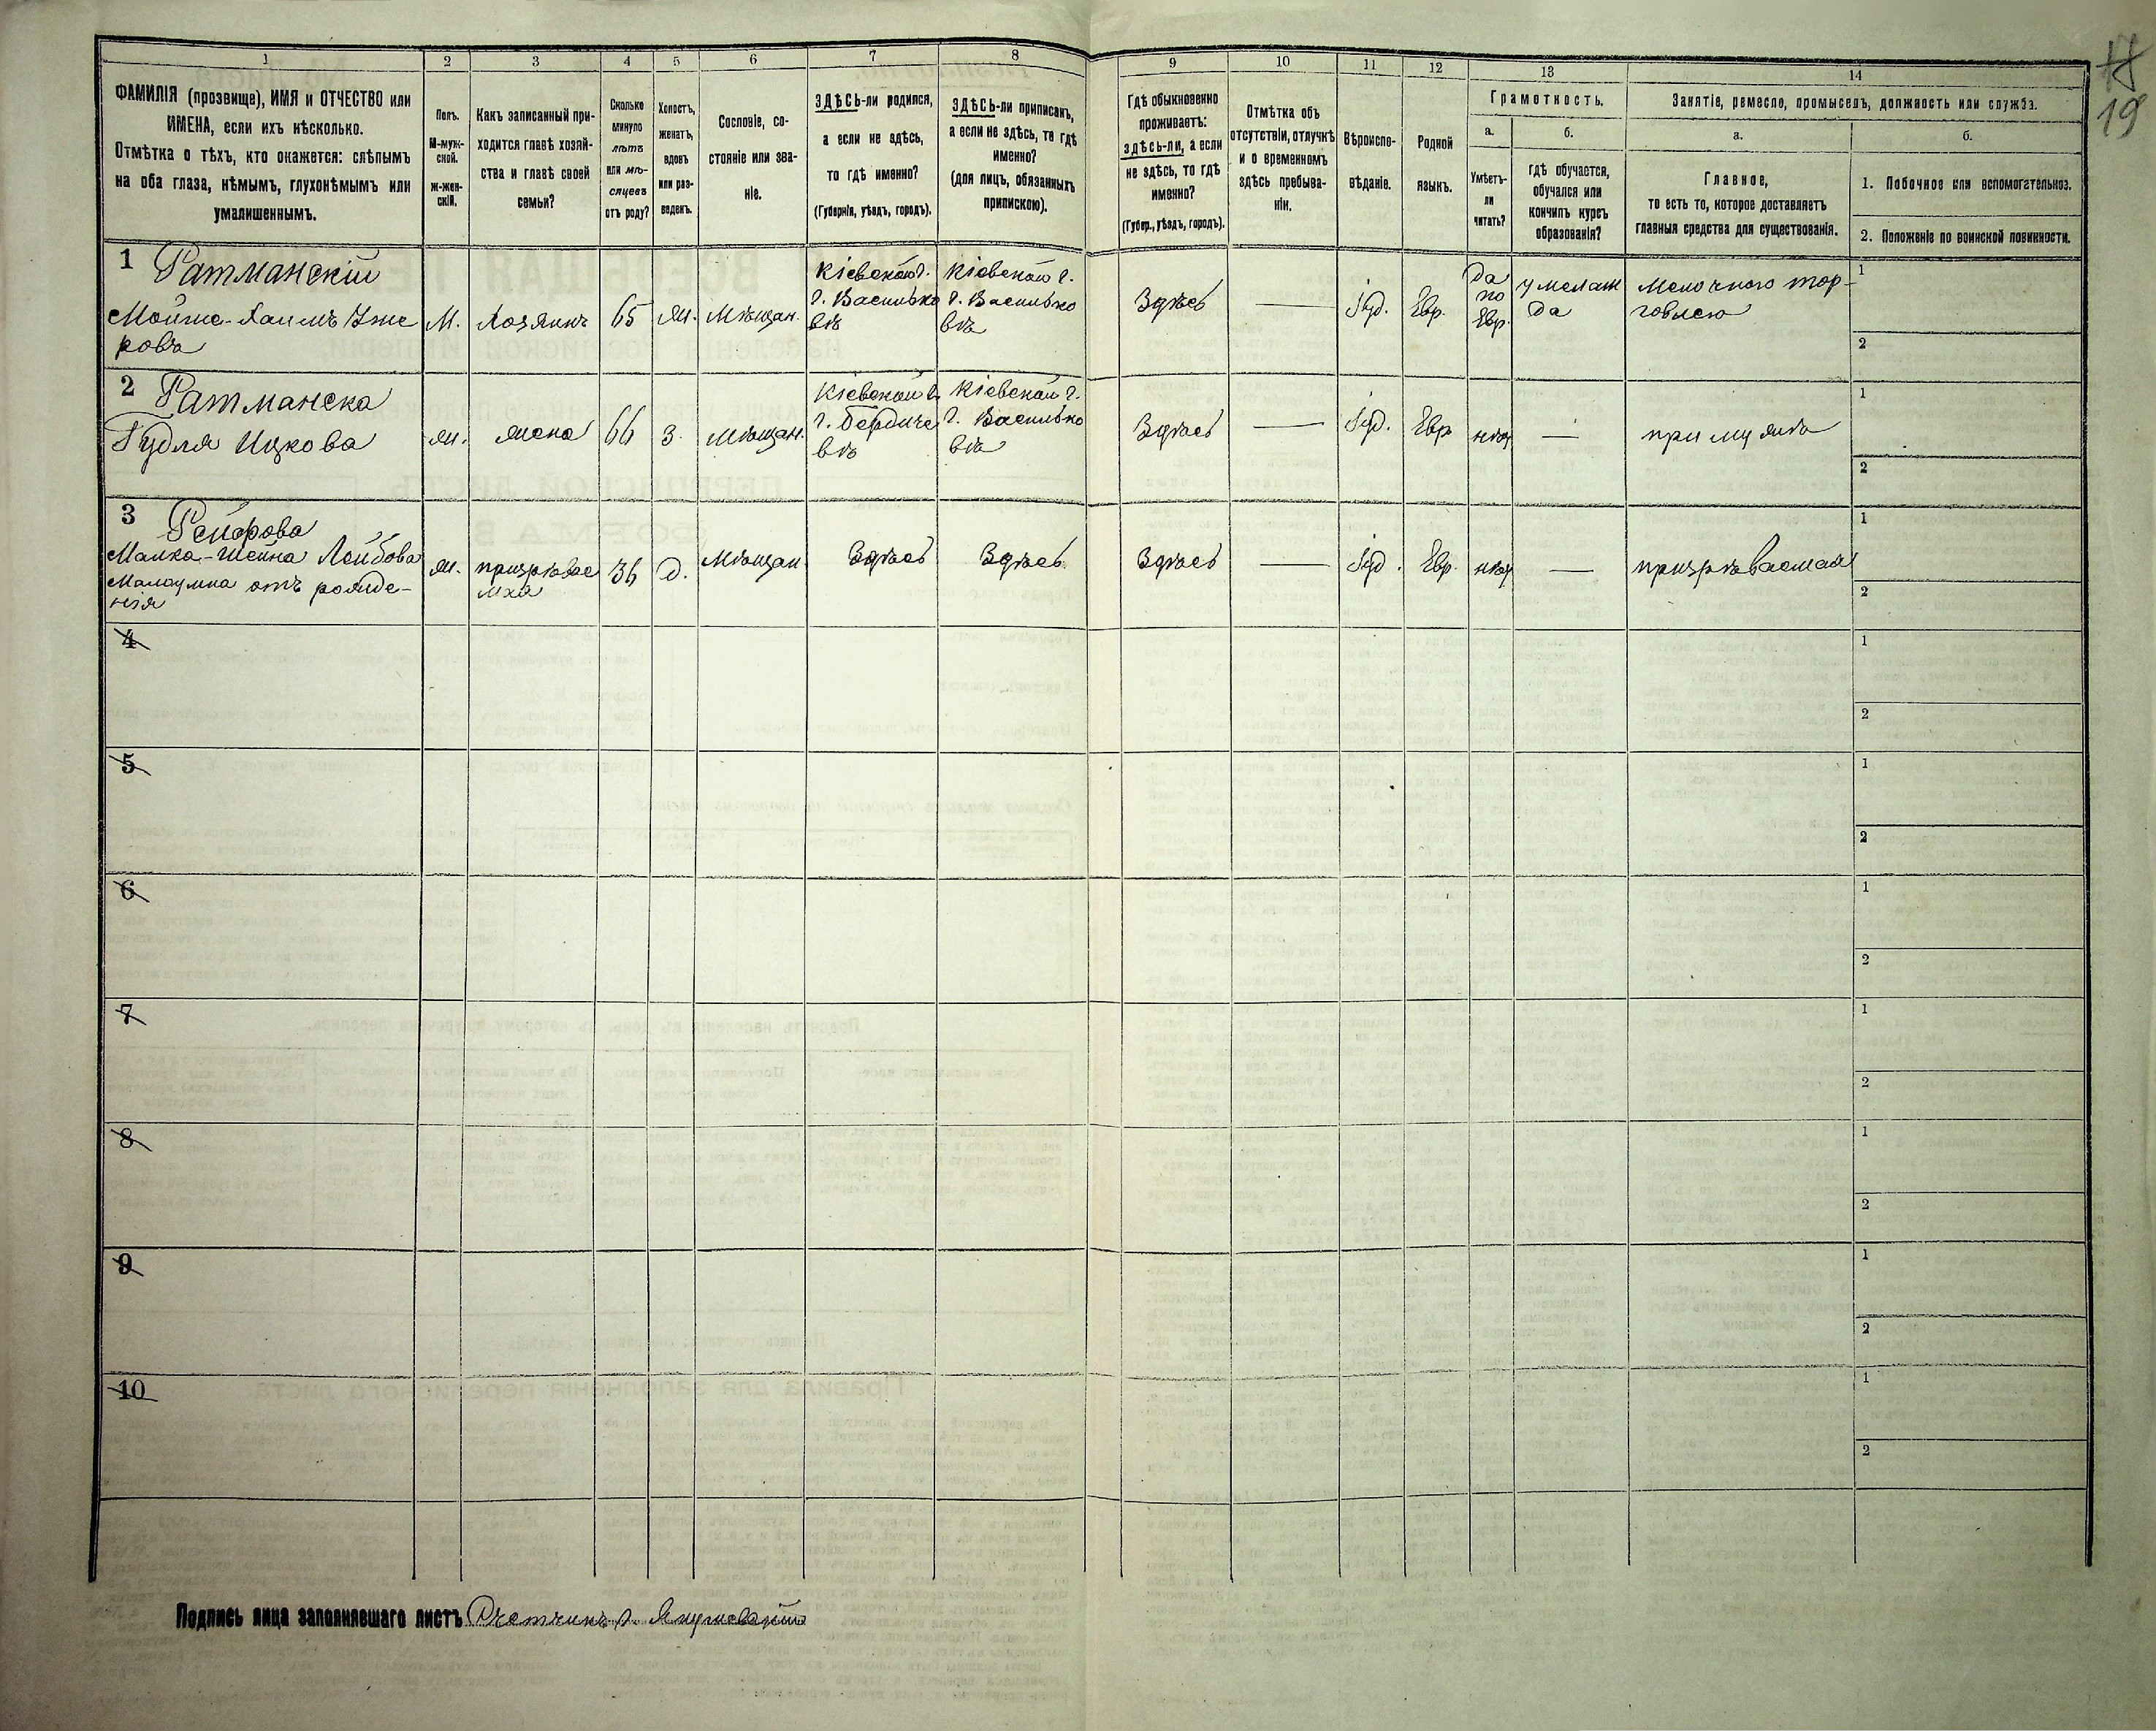 1 2 3 4 5 6 7 8 9 10 11 12 13 14
17
19
ФАМИЛІЯ (прозвище), ИМЯ и ОТЧЕСТВО или
ИМЕНА, если ихъ нѣсколько.
Отмѣтка о тѣхъ, кто окажется: слѣпымъ
на оба глаза, нѣмымъ, глухонѣмымъ или
умалишеннымъ.
Полъ.
М-муж-
ской.
ж-жен-
скій.
Какъ записанный при-
ходится главѣ хозяй-
ства и главѣ своей
семьи?
Сколько
минуло
лѣтъ
или мѣ-
сяцевъ
отъ роду?
Холостъ,
женатъ,
вдовъ
или раз-
веденъ.
Сословіе, со-
стояніе или зва-
ніе.
ЗДѢСЬ-ли родился,
а если не здѣсь,
то гдѣ именно?
(Губернія, уѣздъ, городъ).
ЗДѢСЬ-ли приписанъ,
а если не здѣсь, то гдѣ
именно?
(для лицъ, обязанныхъ
припискою).
Гдѣ обыкновенно
проживаетъ:
здѣсь-ли, а если
не здѣсь, то гдѣ
именно?
(Губер., уѣздъ, городъ).
Отмѣтка объ
отсутствіи, отлучкѣ
и о временномъ
здѣсь пребыва-
ніи.
Вѣроиспо-
вѣданіе.
Родной
языкъ.
Грамотность.
а.
Умѣетъ-
ли
читать?
б.
Гдѣ обучается,
обучался или
кончилъ курсъ
образованія?
Занятіе, ремесло, промыселъ, должность или служба.
а.
Главное,
то есть то, которое доставляетъ
главныя средства для существованія.
б.
1. Побочное или вспомогательное.
2. Положеніе по воинской повинности.
1 Ратманскій
Мойше-Хаимъ
ровъ
М.
Хозяинъ
65
ж.
Мѣщан.
Кіевской г.
г. Василько
вѣ
Кіевской г.
г. Василько
вѣ
Здѣсь
—
Іуд.
Евр.
Да
по
Евр.
у мелам
да
Мелочною тор-
говлею
1
2
2 Ратманска
Гудля Ицкова
ж.
жена
66
З.
Мѣщан.
Кіевской г.
г. Бердиче
вѣ
Кіевской г.
г. Василько
вѣ
Здѣсь
—
Іуд.
Евр
нѣт
—
при мужѣ
1
2
3
Малка-Шейна Лейбова
Малоумна отъ рожде-
нія
ж.
призрѣвае
мая
36
д.
Мѣщан
Здѣсь
Здѣсь
Здѣсь
—
Іуд.
Евр.
нѣт
—
призрѣваемая
1
2
4
1
2
5
1
2
6
1
2
7
1
2
8
1
2
9
1
2
10
1
2
Подпись лица заполнявшаго листъ Счетчикъ